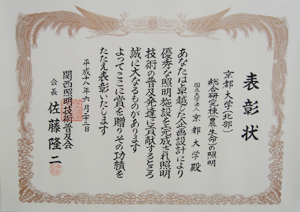 表彰状
京都大学(北部)
総合研究棟(農・生命)の照明
国立大学法人 京都大学殿
あなたは卓越した企画設計により
優秀な照明施設を完成され照明
技術の普及発達に貢献するところ
誠に大なるものがあります
よってここに賞を贈りその功績を
たたえ表彰いたします
平成十八年六月二十二日
関西照明技術普及会
会長 佐藤隆二